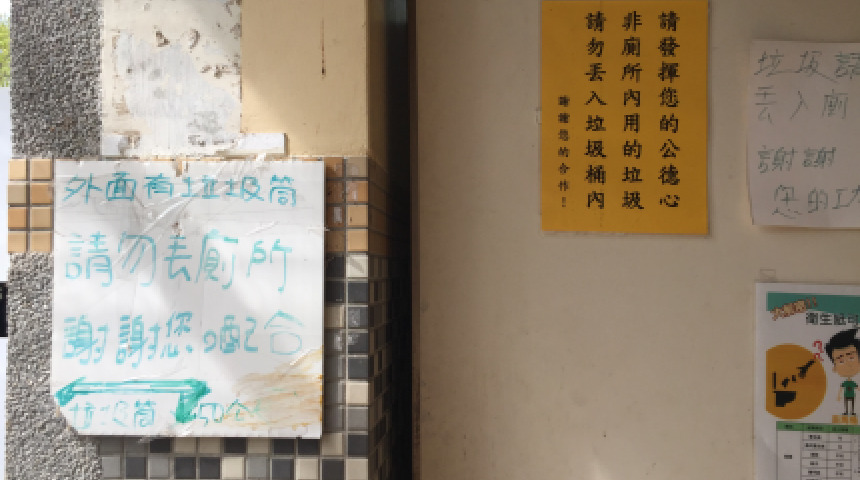 外面有垃圾筒
請勿丟廁所
謝謝您的配合
垃圾筒 50公
請發揮您的公德心
非廁所內用的垃圾
請勿丟入垃圾桶內
謝謝您的合作！
垃圾請
丟入廁
謝謝
您的
衛生紙可